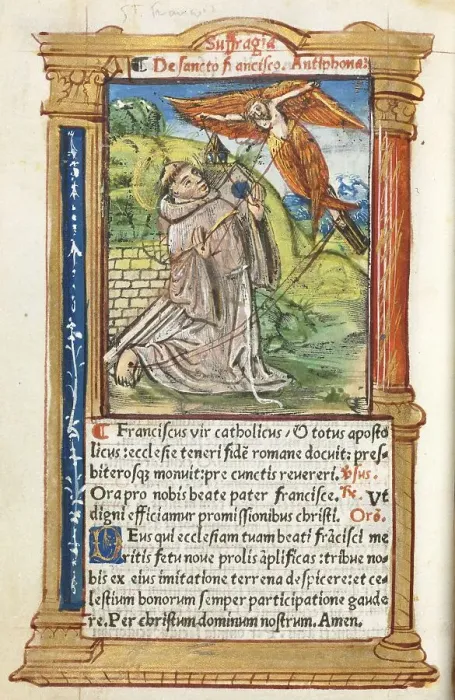 ST. Francis
Suffragia
¶ De sancto francisco. Antiphona:
¶ Franciscus vir catholicus / O totus aposto
licus : ecclesie teneri fidē romane docuit: pres-
biterosq; monuit: pre cunctis revereri. Ꝟsus.
Ora pro nobis beate pater francisce. ℟e. Vt
digni efficiamur promissionibus christi. Orō.
DEus qui ecclesiam tuam beati frācisci me
ritis fetu noue prolis āplificas : tribue no-
bis ex eius imitatione terrena despicere: et ce-
lestium bonorum semper participatione gaude
re. Per christum dominum nostrum. Amen.